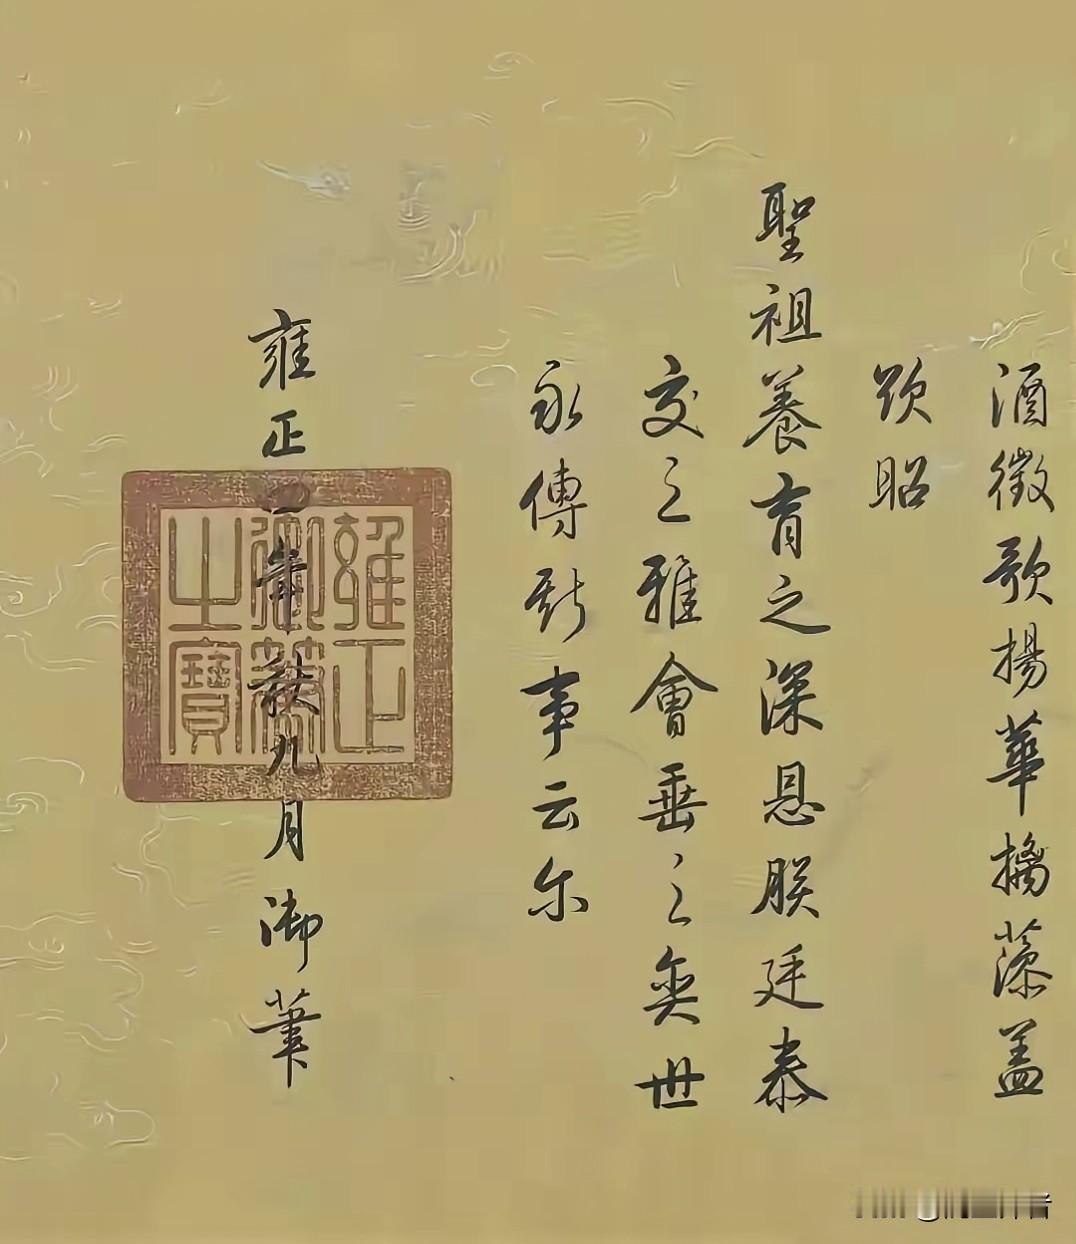 酒徵歌揚華摛藻盖
欲昭
聖祖養育之深恩朕廷泰
交之雅會垂之奕世
永傳斯事云尔
雍正四年秋九月御筆
雍正
御筆
之寶